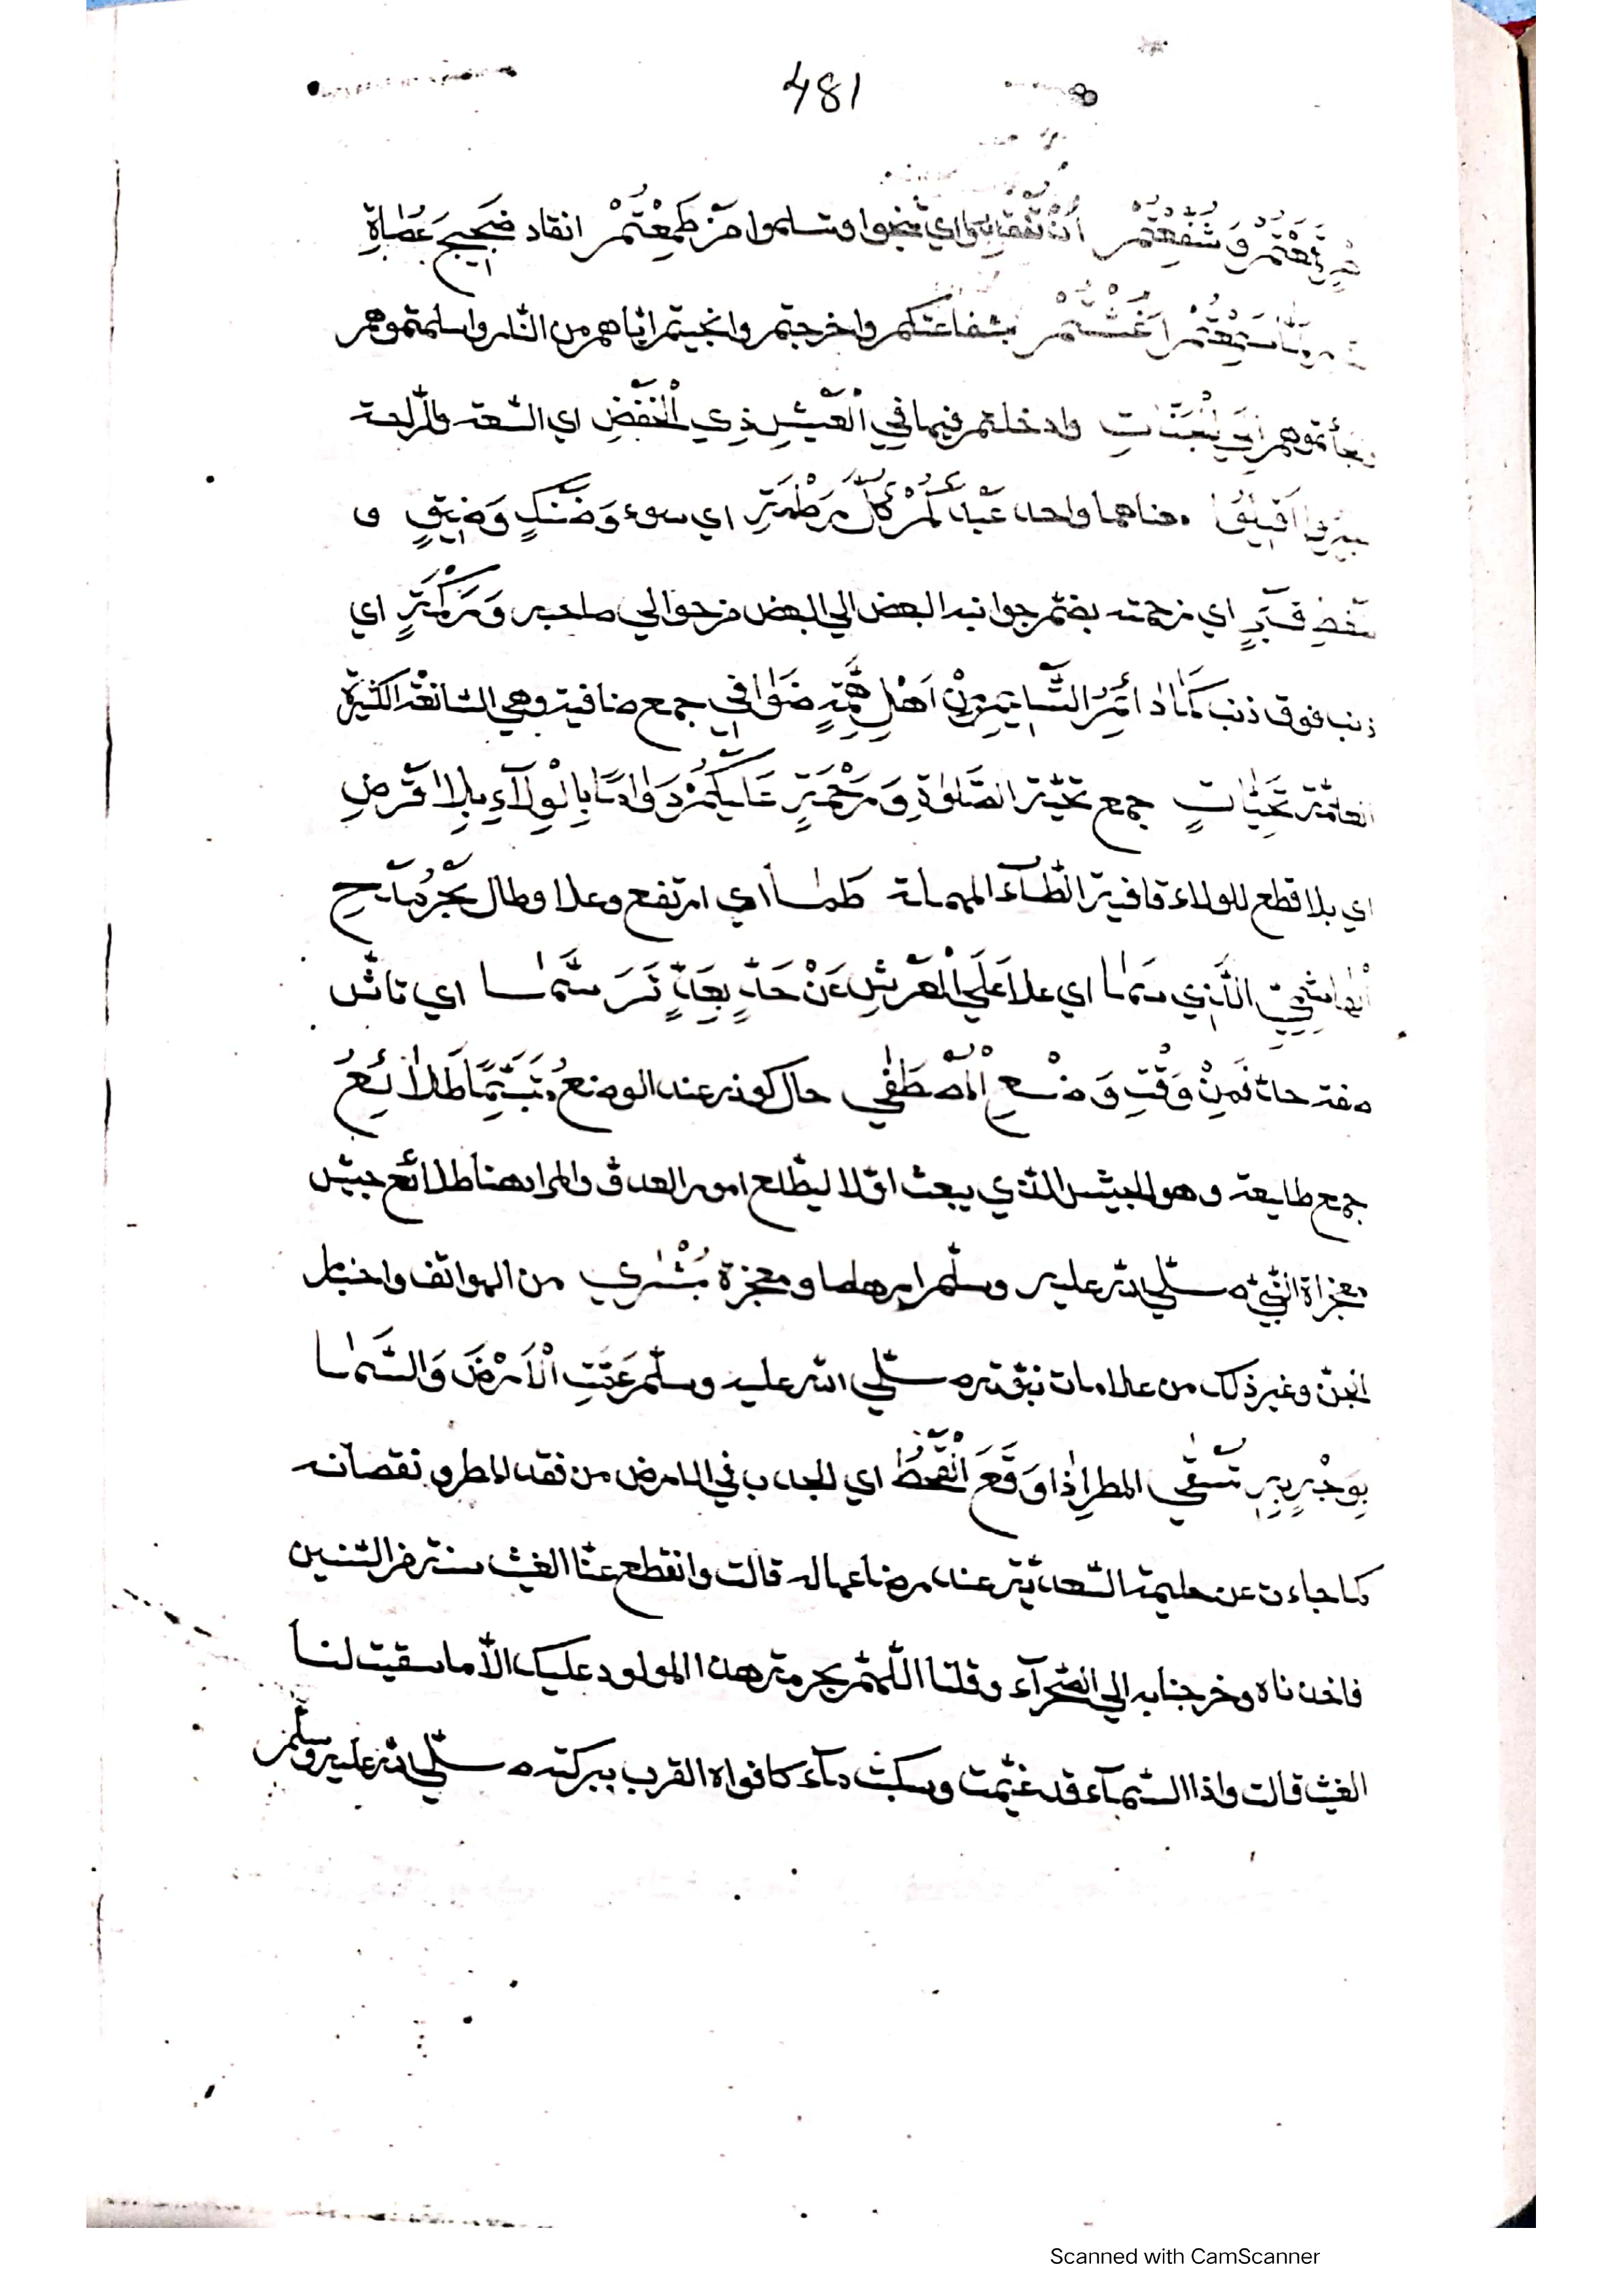 481
وَ شَفَعْتُمْ أَنْ تُنْقَذُوا اي تنجوا وتسلموا مَنْ طَمِعْتُمْ انقاد فَجَمِيعَ عُصَاةِ
أَغَثْتُمْ بشفاعتكم واخرجتم وانجيتم ايّاهم من النّار واسلمتموهم
اِلَي الْجَنَّاتِ وادخلتم فيها فِي الْعَيْشِ ذِي الْخَفْضِ اي السّعة والرّاحة
واحد عَبْدَكُمْ كُلَّ مَرْطَمَةٍ اي سوء وَضَنْكٍ وَضِيقٍ و
ضَغْطِ قَبْرٍ اي زحمته بضمّ جوانبه البعض الي البعض من حوالي صاحبه وَرَكْمَةٍ اي
ذنب فوق ذنب كَمَا دَائِمُ التَّسْلِيمِ مِنْ اَهْلِ هِمَّةٍ ضَوَافِي جمع ضافية وهي السّابغة الكثيرة
العامّة تَحِيَّاتٍ جمع تحيّة الصَّلٰوةِ وَرَحْمَةٍ عَلَيْكُمْ دَوَامًا بِالْوِلَآءِ بِلَا قَرْضِ
اي بلا قطع للولاء قافية الطّآء المهملة طَمٰا اي ارتفع وعلا وطال بَحْرُ مَدْحِ
الْهَاشِمِيِّ الَّذِي سَمٰا اي علا عَلَي الْعَرْشِ عَنْ حَادٍ بِعَادٍ تَرَسَّمٰا اي تاثّل
صفة حاد فَمِنْ وَقْتِ وَضْعِ الْمُصْطَفٰي حال كونه عند الوضع مُتَبَسِّمًا طَلَائِعُ
جمع طليعة وهو الجيش الّذي يبعث اوّلا ليطّلع امور العدوّ والمراد هنا طلائع جيش
معجزاة النّبيّ صلّي الله عليه وسلّم ارهاصا ومعجزة بُشْرٰي من الهواتف واخبار
الجنّ وغير ذلك من علامات نبوّته صلّي الله عليه وسلّم عَمَّتِ الْاَرْضَ وَالسَّمٰا
بِوَجْهٍ بِهِ تُسْقَي المطر اِذَا وَقَعَ الْقَحْطُ اي الجدب في الارض من فقد المطر ونقصانه
كما جاءت عن حليمة السّعديّة عند رضاعها له قالت وانقطع عنّا الغيث سنة من السّنين
فاخذناه وخرجنا به الي الصّحرآء وقلنا اللّهمّ بحرمة هذا المولود عليك الّا ما سقيت لنا
الغيث قالت واذا السّمآء قد غيّمت وسكبت مآء كافواه القرب ببركته صلّي الله عليه وسلّم
Scanned with CamScanner